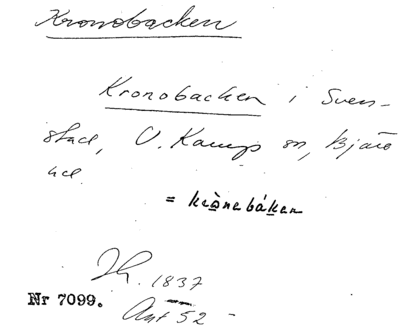 Kronobacken
Kronobacken i Sven-
stad, V. Karup sn, Bjäre
hd.
= krònebáken
Jh. 1837
Nr 7099.
Ant 52 -